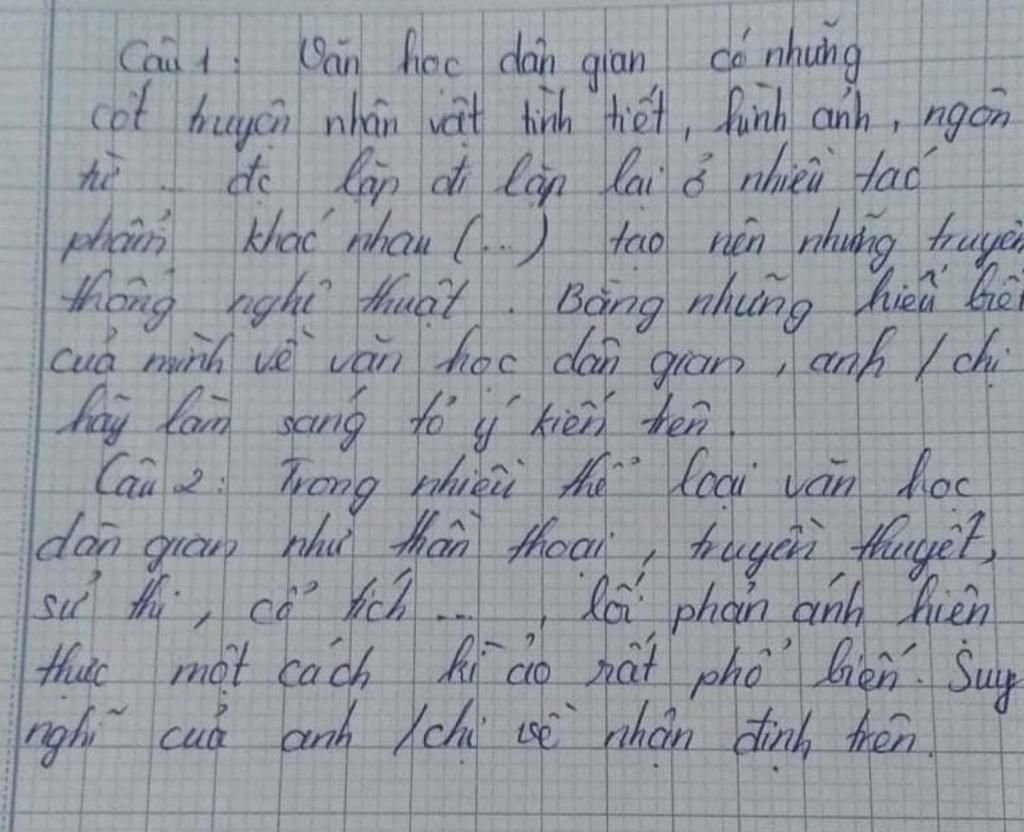 Câu 1: Văn học dân gian có những
cốt truyện nhân vật tình tiết, hình ảnh, ngôn
từ ... đc lặp đi lặp lại ở nhiều tác
phẩm khác nhau (...) tạo nên những truyền
thống nghệ thuật. Bằng những hiểu biết
của mình về văn học dân gian, anh / chị
hãy làm sáng tỏ ý kiến trên.
Câu 2: Trong nhiều thể loại văn học
dân gian như thần thoại, truyền thuyết,
sử thi, cổ tích ..., lối phản ánh hiện
thực một cách kì ảo rất phổ biến. Suy
nghĩ của anh / chị về nhận định trên.